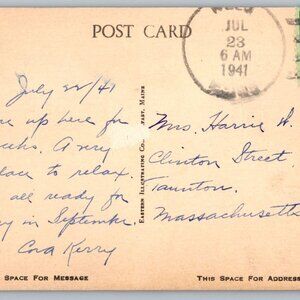 POST CARD
JUL
23
6 AM
1941
July 22/41
re up here for
eeks. A very
lace to relax.
all ready for
y in September.
Cora Kerry
EASTERN ILLUSTRATING CO., BELFAST, MAINE
Mrs. Harrie D.
Clinton Street
Taunton,
Massachusetts
SPACE FOR MESSAGE
THIS SPACE FOR ADDRESS